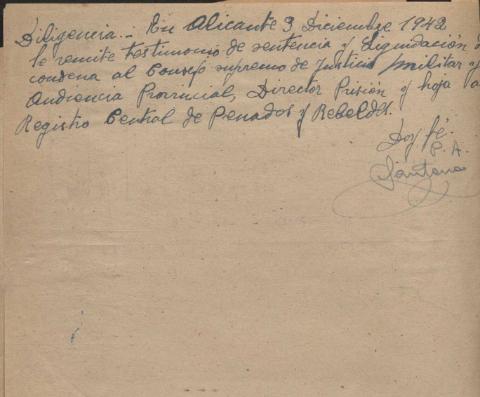 Diligencia.- En Alicante 3 Diciembre 1942
se remite testimonio de sentencia y liquidación
condena al Consejo supremo de Justicia militar y
Audiencia Provincial, Director Prisión y hoja
Registro Central de Penados y Rebeldes.
Doy fé.
P. A.
Santana